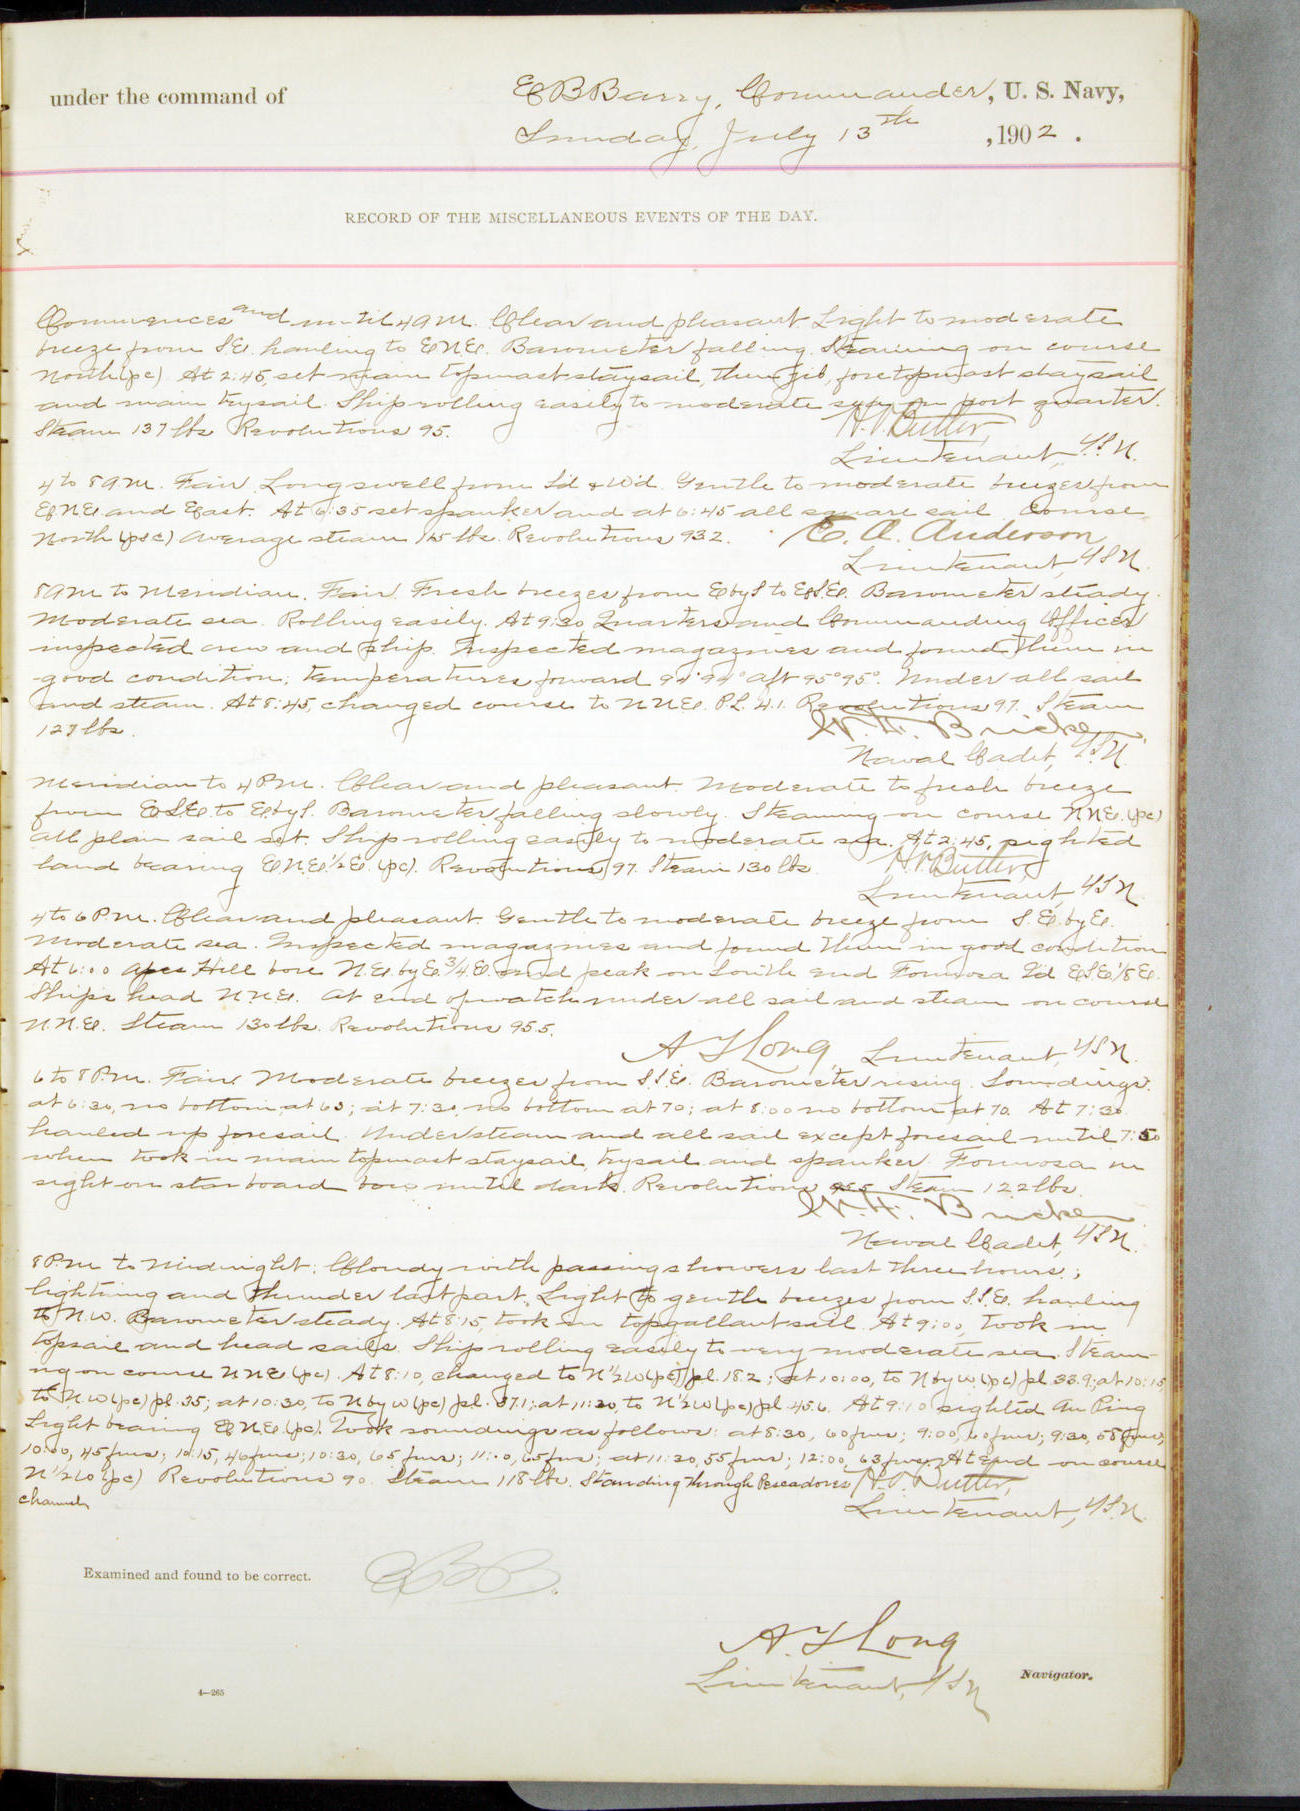 under the command of E B Barry, Commander, U. S. Navy,
Sunday, July 13th, 1902.
RECORD OF THE MISCELLANEOUS EVENTS OF THE DAY.
Commences and until 4 A.M. Clear and pleasant. Light to moderate
breeze from S.E. hauling to E.N.E. Barometer falling. Steaming on course
North (pc). At 2:45, set main topmast staysail, then jib, foretopmast staysail
and main trysail. Ship rolling easily to moderate sea on port quarter.
Steam 137 lbs Revolutions 95.
H.V. Butler,
Lieutenant, U.S.N.
4 to 8 A.M. Fair. Long swell from S'd & W'd. Gentle to moderate breezes from
E.N.E. and East. At 6:35 set spanker and at 6:45 all square sail. Course
North (psc) Average steam lbs. Revolutions 93.2.
E. A. Anderson
Lieutenant, U.S.N.
8 A.M. to Meridian. Fair. Fresh breezes from E by S to E.S.E. Barometer steady.
Moderate sea. Rolling easily. At 9:30 Quarters and Commanding Officer
inspected crew and ship. Inspected magazines and found them in
good condition; temperatures forward 94° 94° aft 95° 95°. Under all sail
and steam. At 8:45, changed course to N.N.E. P.L. 4.1. Revolutions 97. Steam
127 lbs.
Naval Cadet, U.S.N.
Meridian to 4 P.M. Clear and pleasant. Moderate to fresh breeze
from E.S.E. to E by S. Barometer falling slowly. Steaming on course N.N.E. (pc)
all plain sail set. Ship rolling easily to moderate sea. At 2:45, sighted
land bearing E.N.E. 1/2 E. (pc). Revolutions 97. Steam 130 lbs
H.V. Butler
Lieutenant, U.S.N.
4 to 6 P.M. Clear and pleasant. Gentle to moderate breeze from S.E. by E.
Moderate sea. Inspected magazines and found them in good condition
At 6:00 Apes Hill bore N.E. by E. 3/4 E. and peak on South end Formosa I'd E.S.E. 1/8 E.
Ships head N.N.E. At end of watch under all sail and steam on course
N.N.E. Steam 130 lbs. Revolutions 95.5.
A T Long, Lieutenant, U.S.N.
6 to 8 P.M. Fair. Moderate breezes from S.S.E. Barometer rising. Soundings:
at 6:30, no bottom at 65; at 7:30, no bottom at 70; at 8:00 no bottom at 70. At 7:30
hauled up foresail. Under steam and all sail except foresail until 7:50
when took in main topmast staysail, trysail and spanker. Formosa in
sight on starboard bow until dark. Revolutions 95.5 Steam 122 lbs.
Naval Cadet, U.S.N.
8 P.M. to Midnight: Cloudy with passing showers last three hours;
lightning and thunder last part. Light to gentle breezes from S.S.E. hauling
to N.W. Barometer steady. At 8:15, took in topgallant sail. At 9:00, took in
topsail and head sails. Ship rolling easily to very moderate sea. Steam-
ing on course N.N.E. (pc). At 8:10, changed to N 1/2 W (pc) pl. 18.2; at 10:00, to N by W. (pc) pl. 33.9; at 10:15
to N W (pc) pl. 35; at 10:30, to N by W (pc) pl. 37.1; at 11:20, to N 1/2 W (pc) pl. 45.6. At 9:10 sighted An Ping
Light bearing E.N.E. (pc). Took soundings as follows: at 8:30, 60 fms; 9:00, 60 fms; 9:30, 58 fms;
10:00, 45 fms; 10:15, 46 fms; 10:30, 65 fms; 11:00, 65 fms; at 11:20, 55 fms; 12:00, 63 fms. At end on course
N 1/2 W (pc) Revolutions 90. Steam 118 lbs. Standing through Pescadores
channel.
H.V. Butler,
Lieutenant, U.S.N.
Examined and found to be correct. EBB.
A. T Long
Lieutenant, U.S.N. Navigator.
4—265